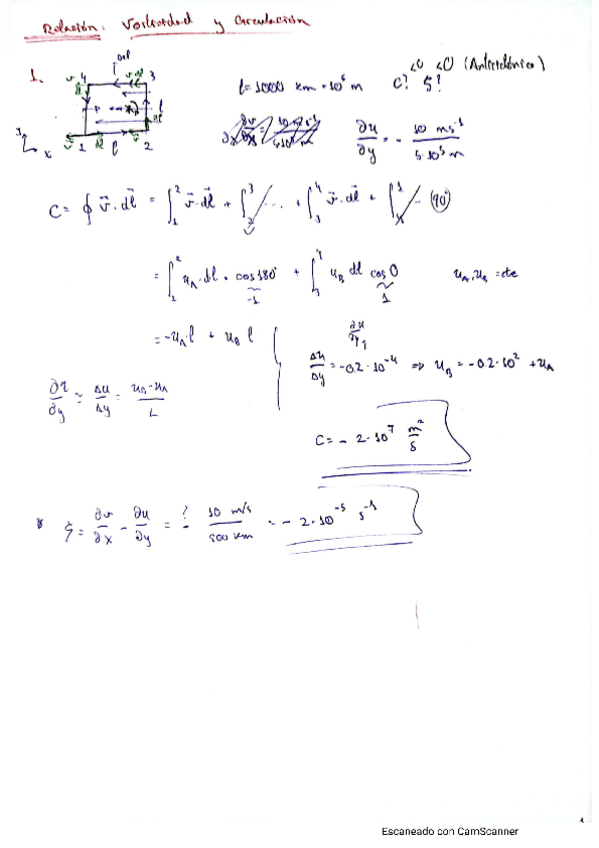 Relación: Vorticidad y Circulación
1. l = 1000 km = 10⁶ m C? ξ? <0 <0 (Anticiclónico)
v 4 dl 3
1 l 2
y x
∂u/∂y = - 10 ms⁻¹ / 5·10⁵ m
C = ∮ v·dl = ∫₁² v·dl + ∫₂³ ... + ∫₃⁴ v·dl + ∫₄¹ - (90°)
= ∫₁² u_A·dl·cos180° + ∫₃⁴ u_B dl cos0 u_A, u_B = cte
-1 1
= -u_A l + u_B l
∂u/∂y ≃ Δu/Δy = u_B - u_A / L
Δu/Δy = -0.2·10⁻⁴ ⇒ u_B = -0.2·10² + u_A
C = - 2·10⁷ m²/s
* ξ = ∂v/∂x - ∂u/∂y = ? - 10 m/s / 500 km = - 2·10⁻⁵ s⁻¹
Escaneado con CamScanner